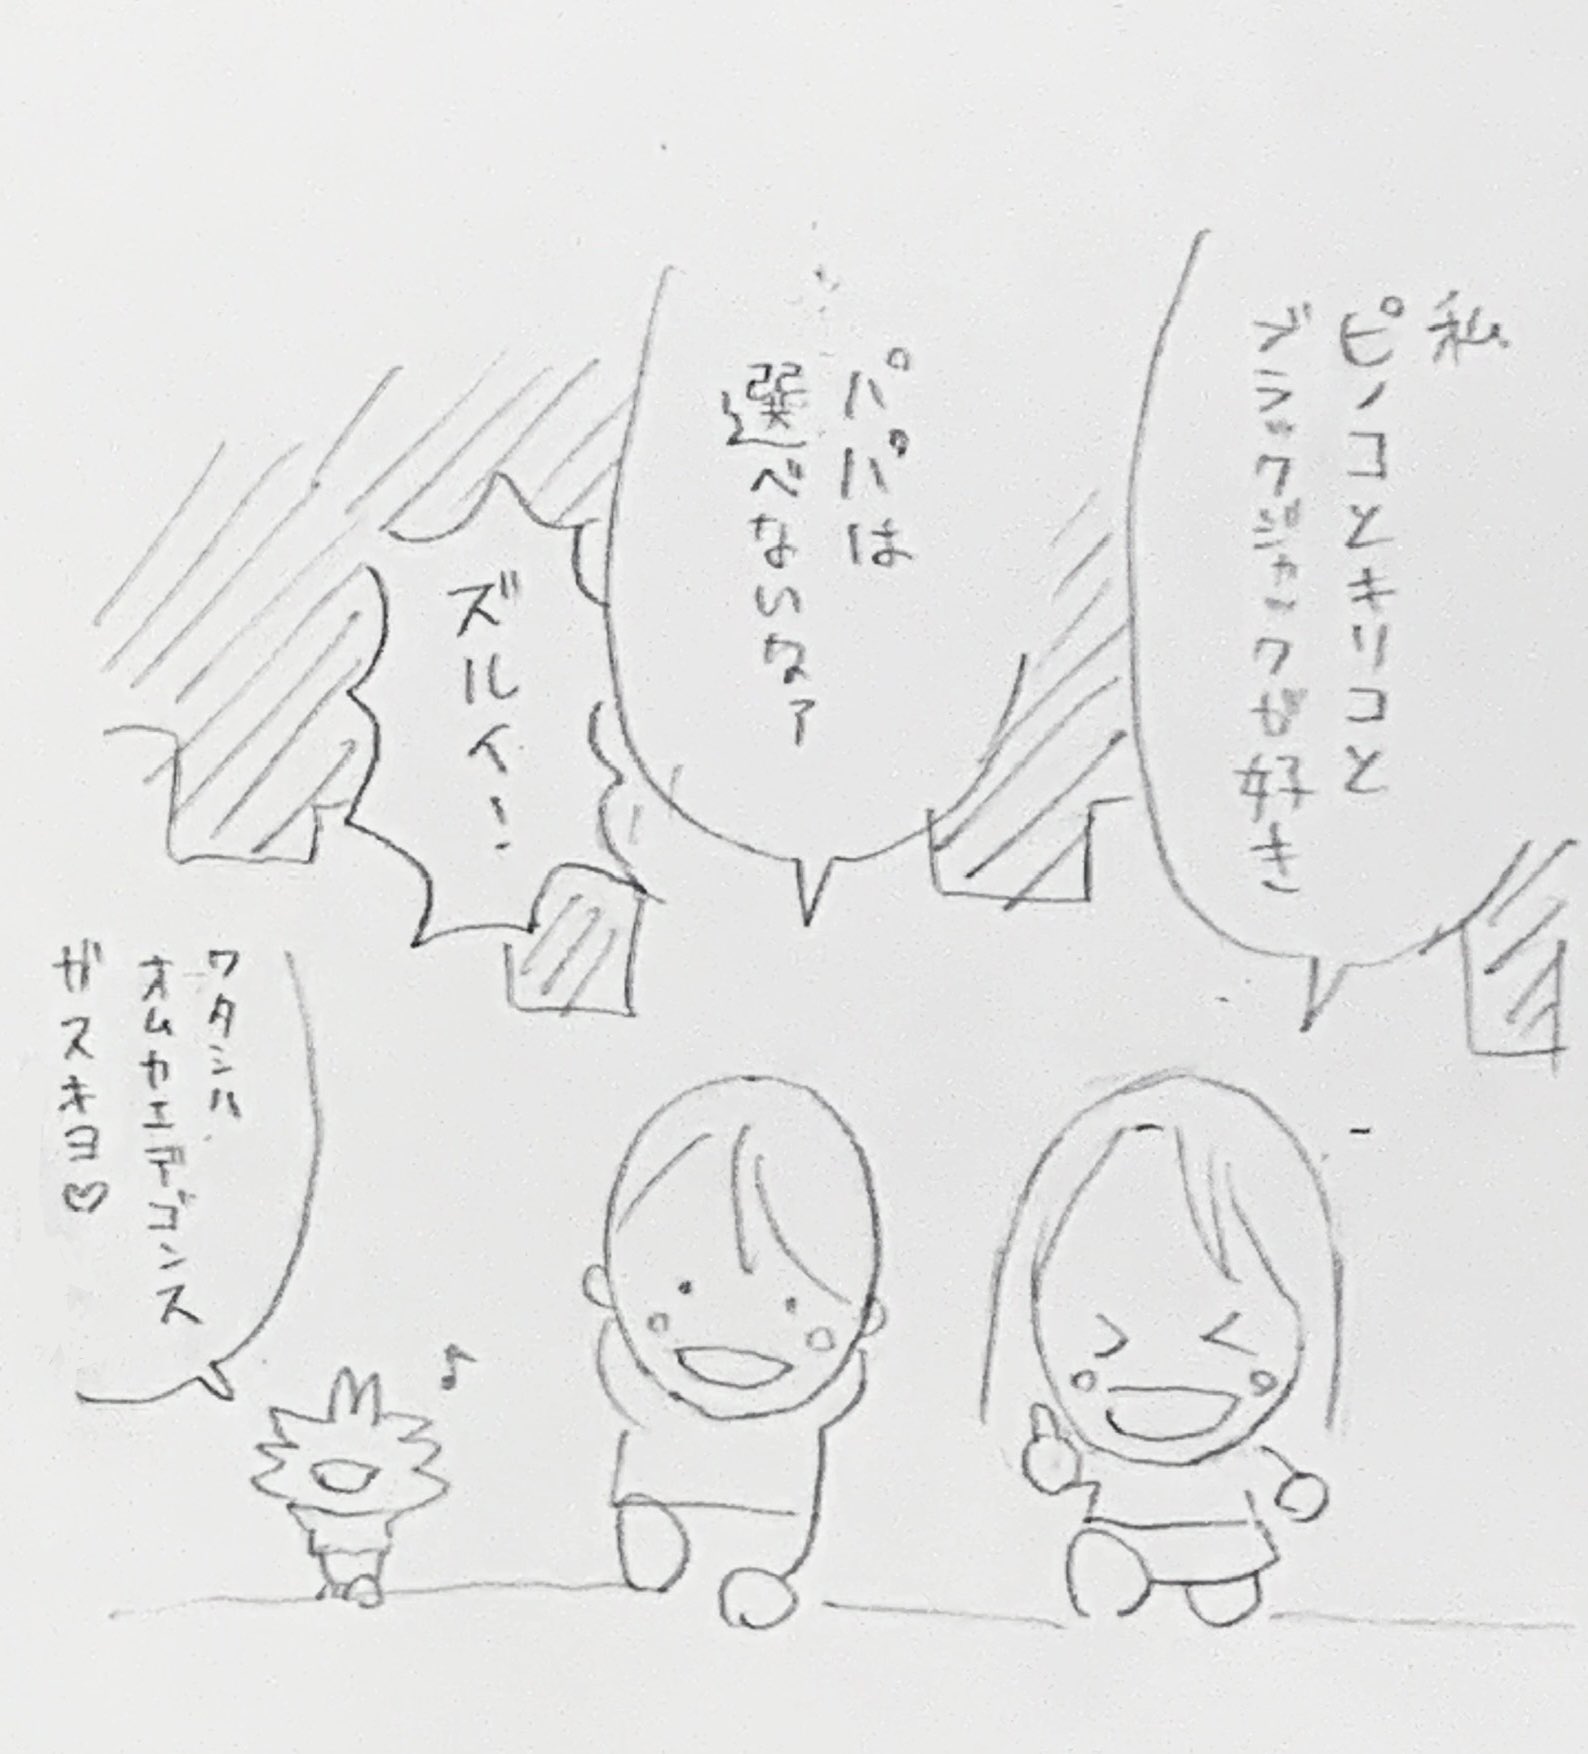 私
ピノコとキリコと
ブラックジャックが好き
パパは
選べないなァ
ズルイ!
ワタシハ
オムカエデゴンス
ガスキヨ♡